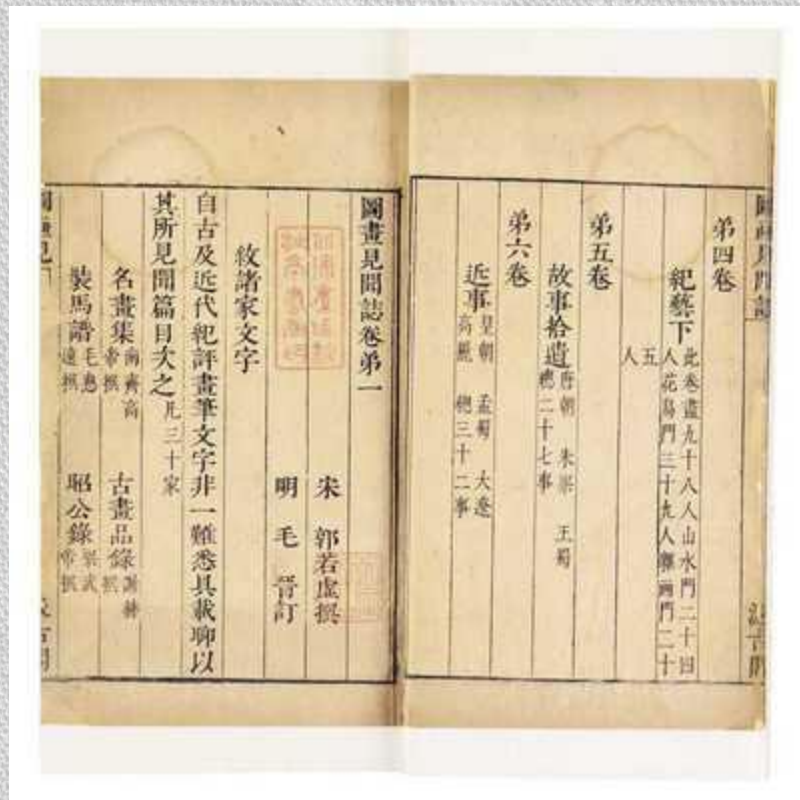 圖畫見聞誌
弟四卷
紀藝下 此卷盡九十八人山水門二十四
人花鳥門三十九人雜畫門二十
五
人
弟五卷
故事拾遺 唐朝 朱梁 王蜀
總二十七事
弟六卷
近事 皇朝 孟蜀 大遼
高麗 總三十二事
圖畫見聞誌卷弟一
宋 郭若虛撰
明 毛 晉訂
敘諸家文字
自古及近代紀評畫筆文字非一難悉具載聊以
其所見聞篇目次之 凡三十家
名畫集 南齊高帝撰 古畫品錄 謝赫撰
裝馬譜 毛惠遠撰 昭公錄 梁武帝撰